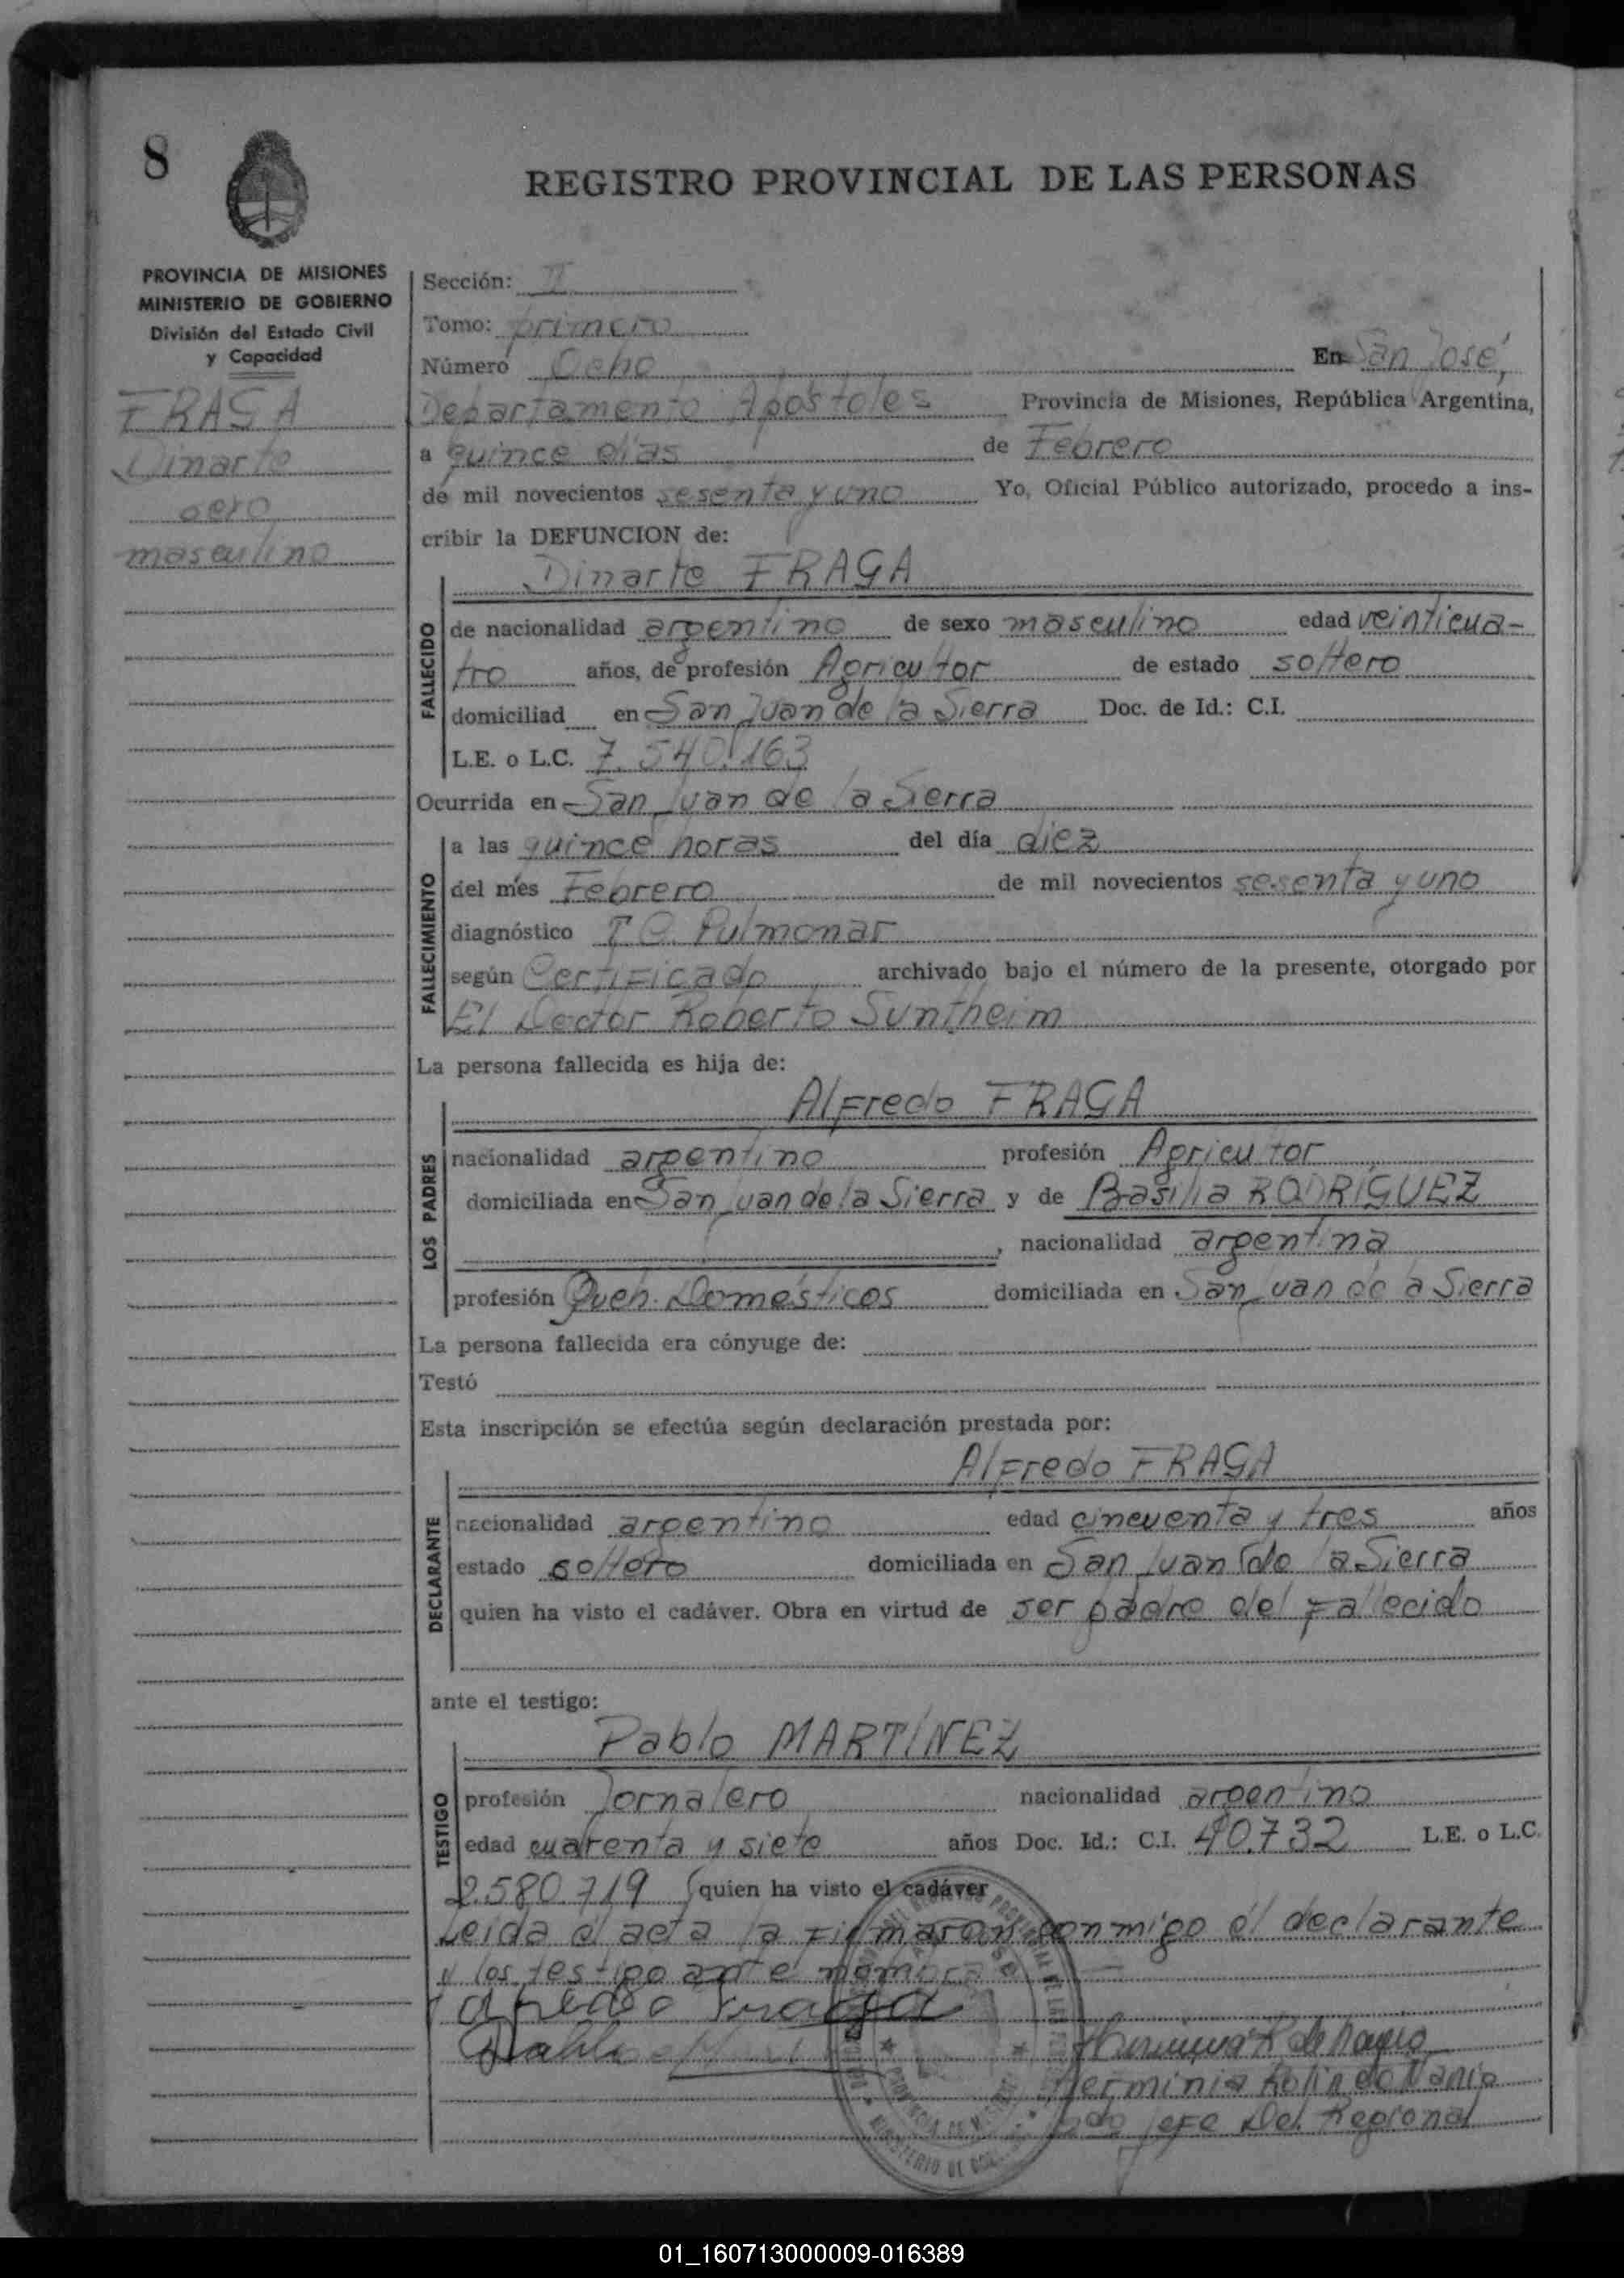 8
REGISTRO PROVINCIAL DE LAS PERSONAS
PROVINCIA DE MISIONES
MINISTERIO DE GOBIERNO
División del Estado Civil
y Capacidad
FRAGA
Dinarte
sexo
masculino
Sección: II
Tomo: primero
Número Ocho En San José,
Departamento Apóstoles Provincia de Misiones, República Argentina,
a quince días de Febrero
de mil novecientos sesenta y uno Yo, Oficial Público autorizado, procedo a ins-
cribir la DEFUNCION de:
Dinarte FRAGA
FALLECIDO
de nacionalidad argentino de sexo masculino edad veinticua-
tro años, de profesión Agricultor de estado soltero
domiciliad en San Juan de la Sierra Doc. de Id.: C.I.
L.E. o L.C. 7.540.163
Ocurrida en San Juan de la Sierra
FALLECIMIENTO
a las quince horas del día diez
del mes Febrero de mil novecientos sesenta y uno
diagnóstico T.C. Pulmonar
según Certificado archivado bajo el número de la presente, otorgado por
El Doctor Roberto Suntheim
La persona fallecida es hija de:
Alfredo FRAGA
LOS PADRES
nacionalidad argentino profesión Agricultor
domiciliada en San Juan de la Sierra y de Basilia RODRÍGUEZ
, nacionalidad argentina
profesión Queh. Domésticos domiciliada en San Juan de la Sierra
La persona fallecida era cónyuge de:
Testó
Esta inscripción se efectúa según declaración prestada por:
Alfredo FRAGA
DECLARANTE
nacionalidad argentino edad cincuenta y tres años
estado soltero domiciliada en San Juan de la Sierra
quien ha visto el cadáver. Obra en virtud de ser padre del fallecido
ante el testigo:
Pablo MARTÍNEZ
TESTIGO
profesión Jornalero nacionalidad argentino
edad cuarenta y siete años Doc. Id.: C.I. 40.732 L.E. o L.C.
2.580.719 quien ha visto el cadáver
Leida el acta la firmaron conmigo el declarante
y los testigo ante nombra
alfredo Fraga
Pablo
Herminia de
Jefe Del. Regional
01_160713000009-016389